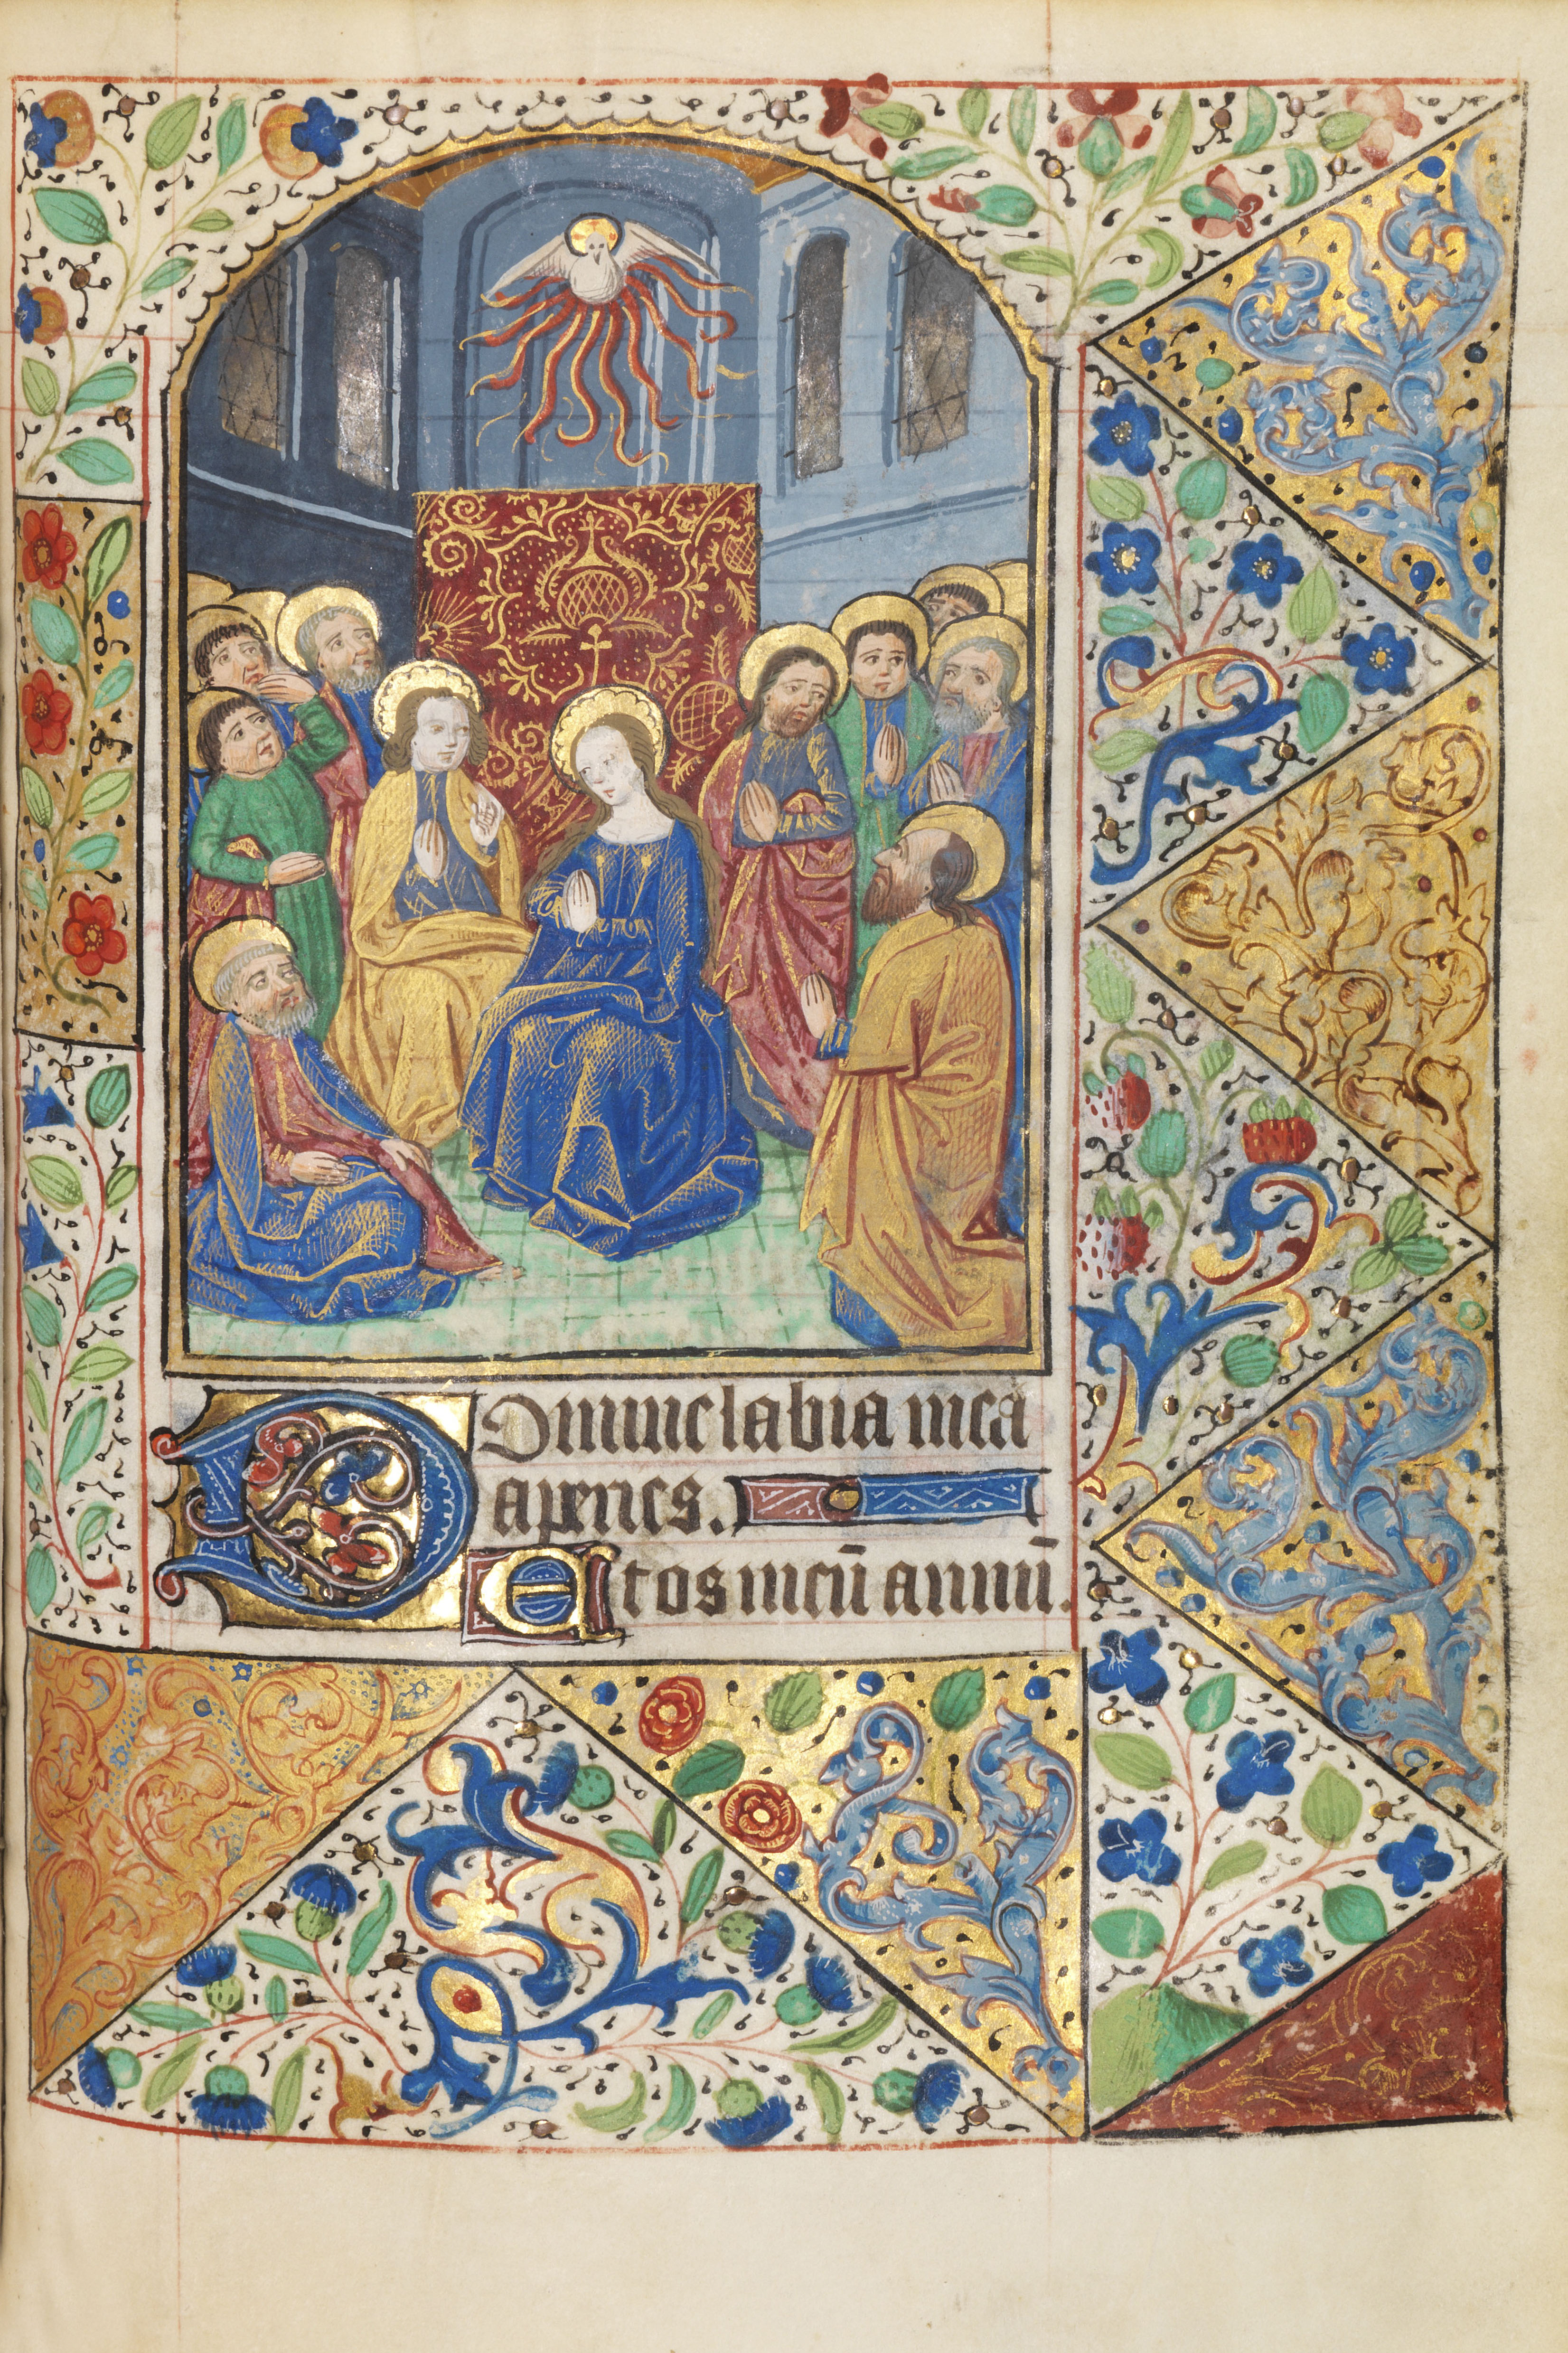 DOmine labia mea
aperies.
Et os meū annū.